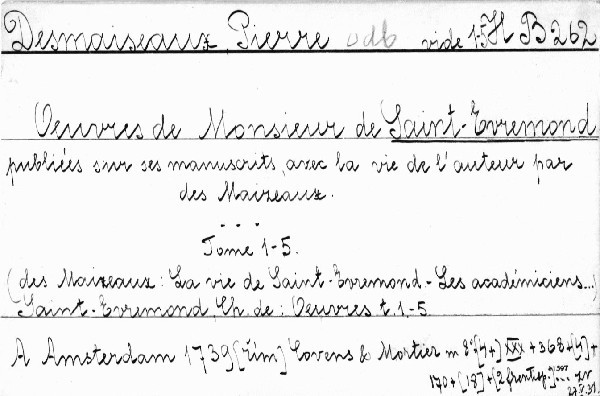 Desmaiseaux Pierre odb vide 15H B 262
Oeuvres de Monsieur de Saint-Evremond
publiées sur ses manuscrits, avec la vie de l'auteur par
des Maizeaux.
...
Tome 1-5.
(des Maizeaux: La vie de Saint-Evremond - Les académiciens...)
Saint-Evremond, Ch. de: Oeuvres t. 1-5
A Amsterdam 1739 [řím] Covens & Mortier m 8° [4+] XXX + 368 + [4] +
170 + [18] + [2 frontisp.]